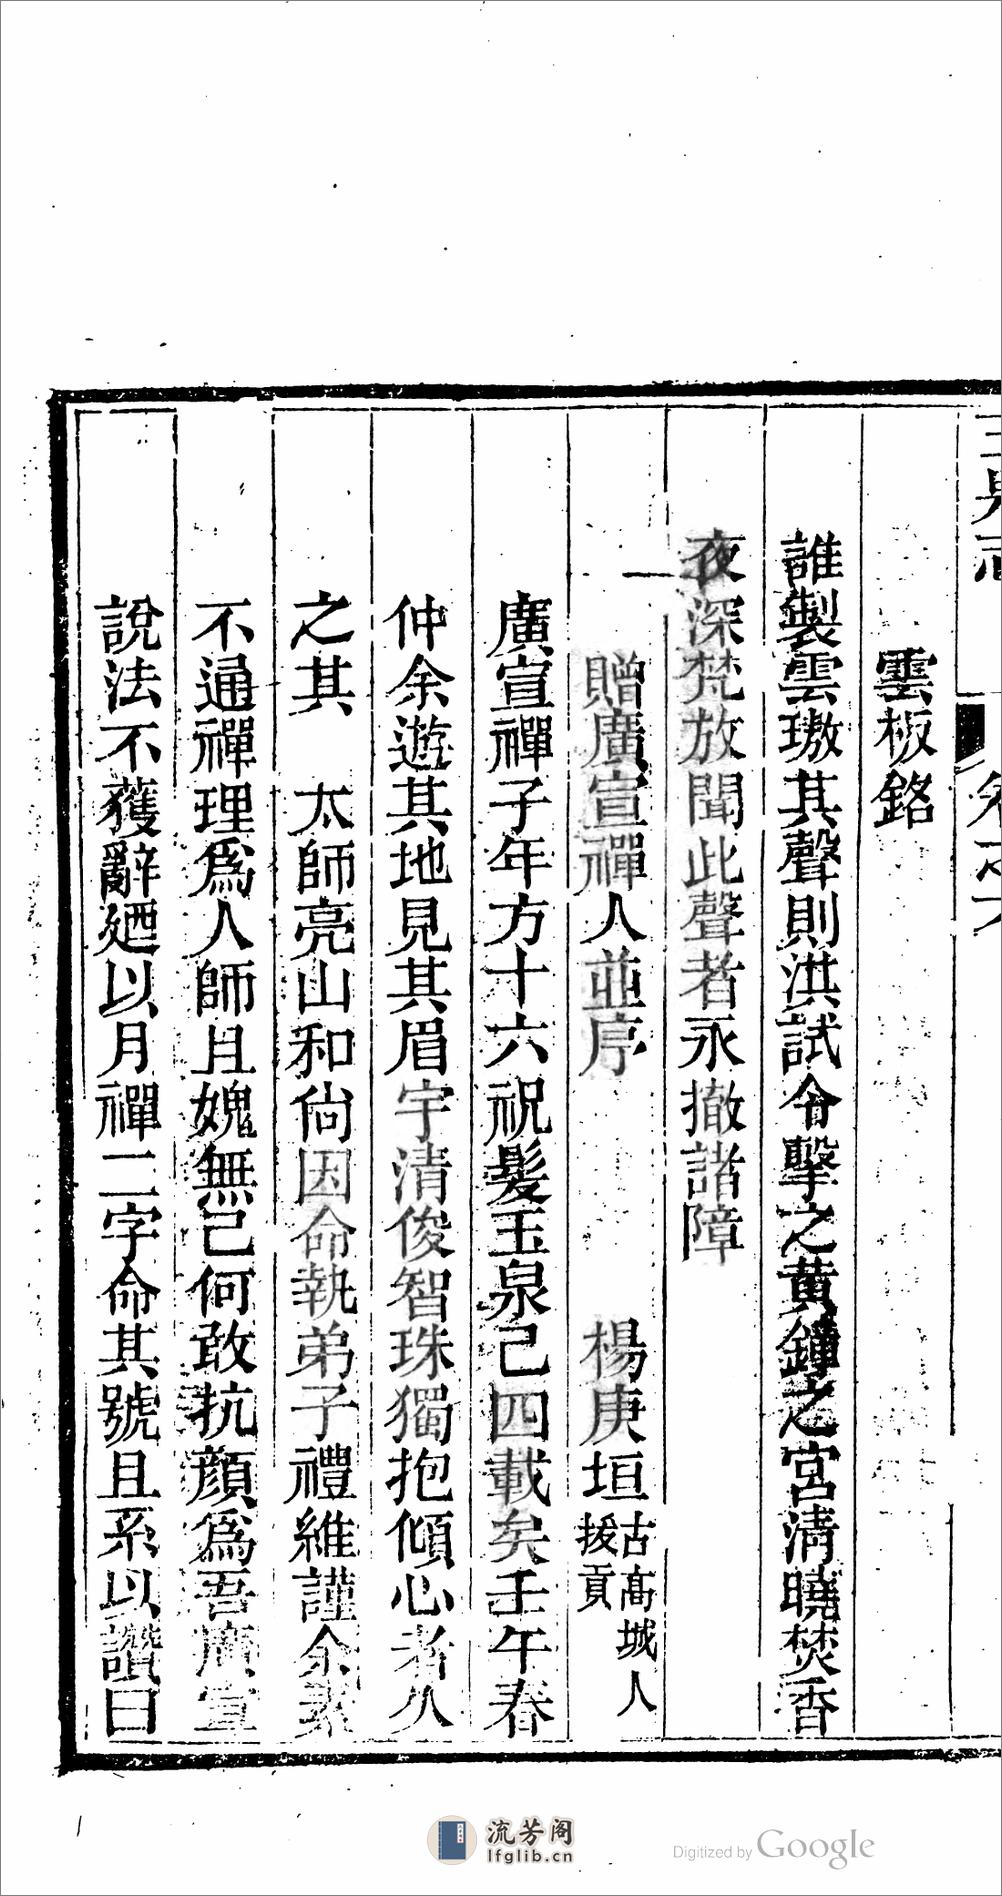 雲板銘
誰製雲璈其聲則洪試令擊之黃鐘之宮清曉焚香
夜深梵放聞此聲者永撤諸障
贈廣宣禪人並序 楊庚垣古高城人拔貢
廣宣禪子年方十六祝髮玉泉己四載矣壬午春
仲余遊其地見其眉宇清俊智珠獨抱傾心者久
之其 太師亮山和尙因命執弟子禮維謹余素
不通禪理爲人師且媿無己何敢抗顏爲吾廣宣
說法不獲辭廼以月禪二字命其號且系以讚曰
流芳阁
lfglib.cn
Digitized by Google